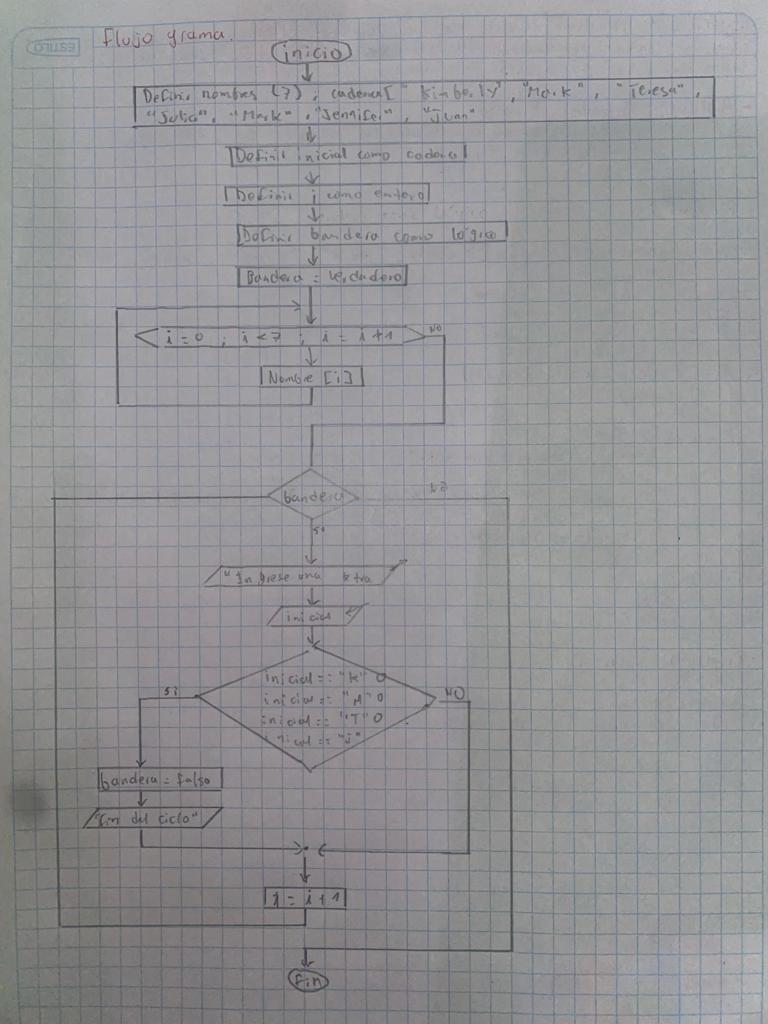 ESTILO
Flujo grama.
inicio
Definir nombres (7) ; cadena[ "Kimberly", "Mark", "Teresa",
"Julia", "Mark", "Jennifer", "Juan"
Definir inicial como cadena
Definir i como entero
Definir bandera como lógico
Bandera = Verdadero
i = 0 ; i < 7 ; i = i + 1 NO
Nombre [i]
bandera NO
si
"Ingrese una letra
inicial
inicial == "K" O
si inicial == "M" O NO
inicial == "T" O
inicial == "J"
bandera = falso
"Fin del ciclo"
i = i + 1
Fin